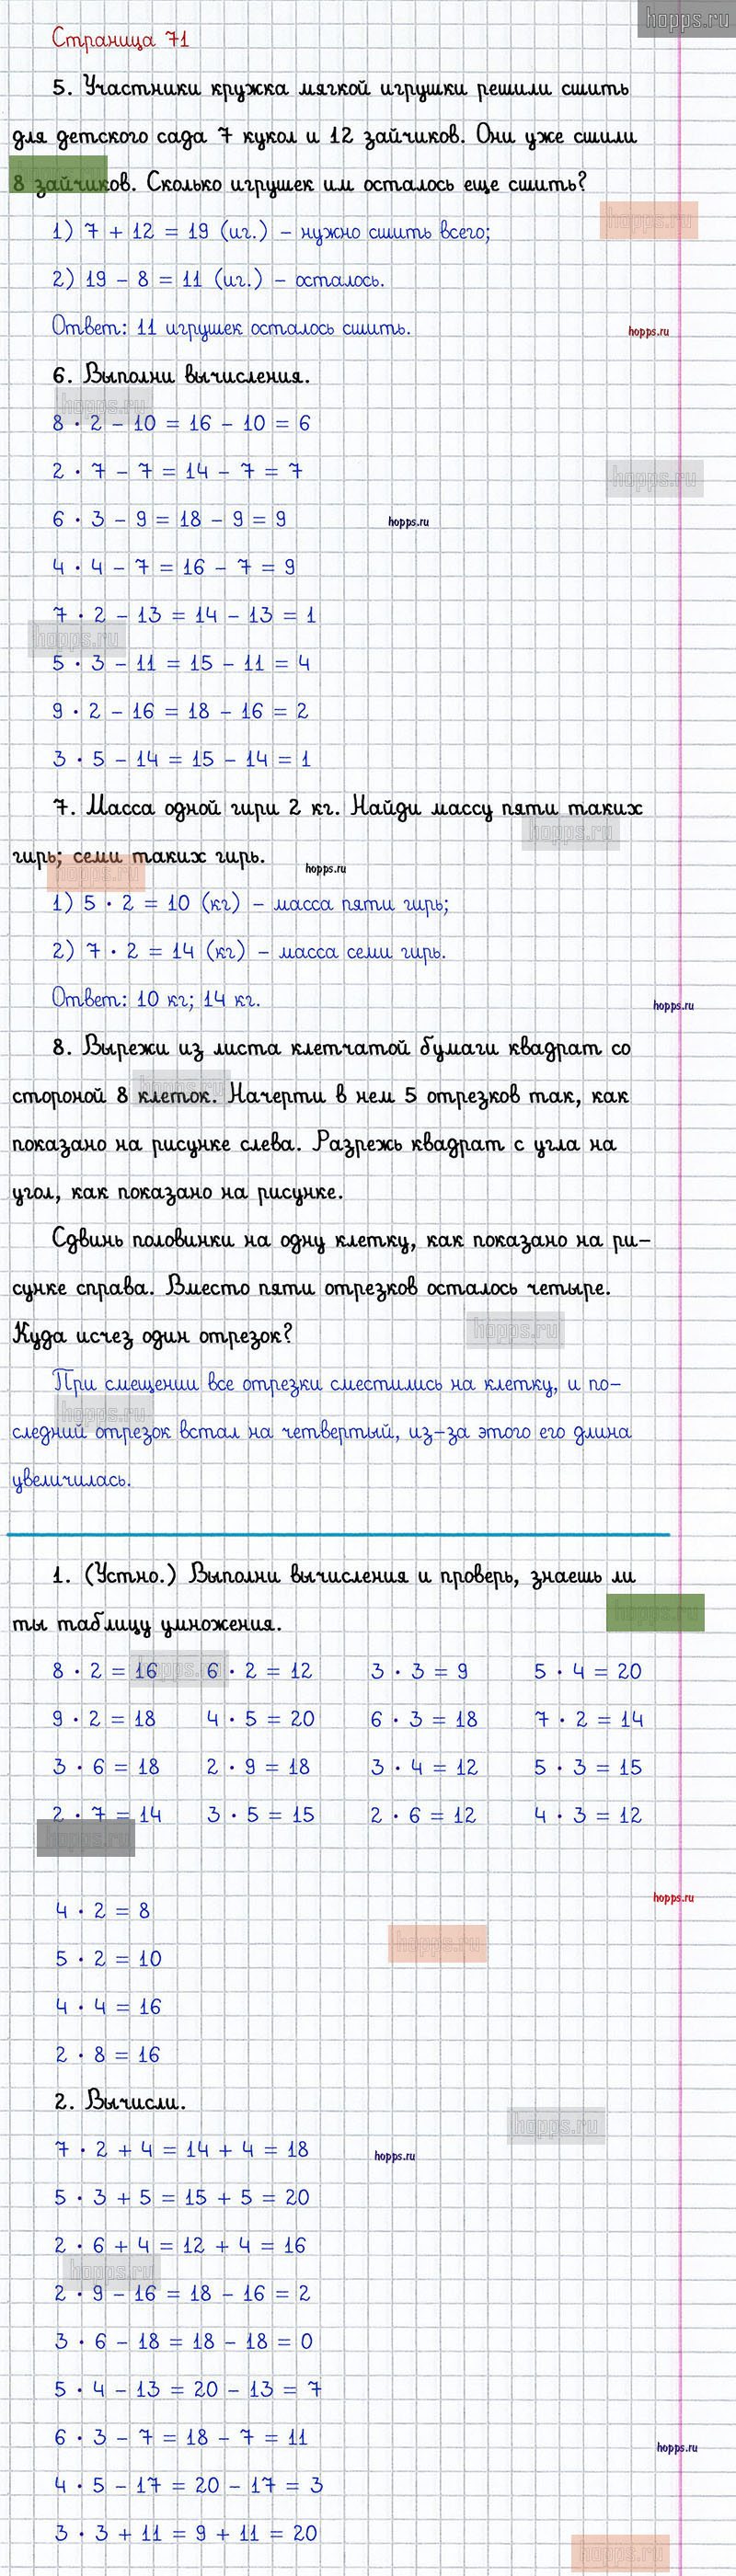 hopps.ru
Страница 71
5. Участники кружка мягкой игрушки решили сшить
для детского сада 7 кукол и 12 зайчиков. Они уже сшили
8 зайчиков. Сколько игрушек им осталось еще сшить?
hopps.ru
1) 7 + 12 = 19 (иг.) – нужно сшить всего;
2) 19 – 8 = 11 (иг.) – осталось.
Ответ: 11 игрушек осталось сшить.
hopps.ru
6. Выполни вычисления.
hopps.ru
8 · 2 – 10 = 16 – 10 = 6
2 · 7 – 7 = 14 – 7 = 7
hopps.ru
6 · 3 – 9 = 18 – 9 = 9
hopps.ru
4 · 4 – 7 = 16 – 7 = 9
7 · 2 – 13 = 14 – 13 = 1
hopps.ru
5 · 3 – 11 = 15 – 11 = 4
9 · 2 – 16 = 18 – 16 = 2
3 · 5 – 14 = 15 – 14 = 1
7. Масса одной гири 2 кг. Найди массу пяти таких
hopps.ru
гирь; семи таких гирь.
hopps.ru
hopps.ru
1) 5 · 2 = 10 (кг) – масса пяти гирь;
2) 7 · 2 = 14 (кг) – масса семи гирь.
Ответ: 10 кг; 14 кг.
hopps.ru
8. Вырежи из листа клетчатой бумаги квадрат со
hopps.ru
стороной 8 клеток. Начерти в нем 5 отрезков так, как
показано на рисунке слева. Разрежь квадрат с угла на
угол, как показано на рисунке.
Сдвинь половинки на одну клетку, как показано на ри-
сунке справа. Вместо пяти отрезков осталось четыре.
Куда исчез один отрезок?
hopps.ru
При смещении все отрезки сместились на клетку, и по-
hopps.ru
следний отрезок встал на четвертый, из-за этого его длина
увеличилась.
1. (Устно.) Выполни вычисления и проверь, знаешь ли
hopps.ru
ты таблицу умножения.
hopps.ru
8 · 2 = 16 6 · 2 = 12 3 · 3 = 9 5 · 4 = 20
9 · 2 = 18 4 · 5 = 20 6 · 3 = 18 7 · 2 = 14
3 · 6 = 18 2 · 9 = 18 3 · 4 = 12 5 · 3 = 15
2 · 7 = 14 3 · 5 = 15 2 · 6 = 12 4 · 3 = 12
hopps.ru
hopps.ru
4 · 2 = 8
hopps.ru
5 · 2 = 10
4 · 4 = 16
2 · 8 = 16
2. Вычисли.
hopps.ru
7 · 2 + 4 = 14 + 4 = 18
hopps.ru
5 · 3 + 5 = 15 + 5 = 20
2 · 6 + 4 = 12 + 4 = 16
hopps.ru
2 · 9 – 16 = 18 – 16 = 2
3 · 6 – 18 = 18 – 18 = 0
5 · 4 – 13 = 20 – 13 = 7
6 · 3 – 7 = 18 – 7 = 11
hopps.ru
4 · 5 – 17 = 20 – 17 = 3
3 · 3 + 11 = 9 + 11 = 20
hopps.ru